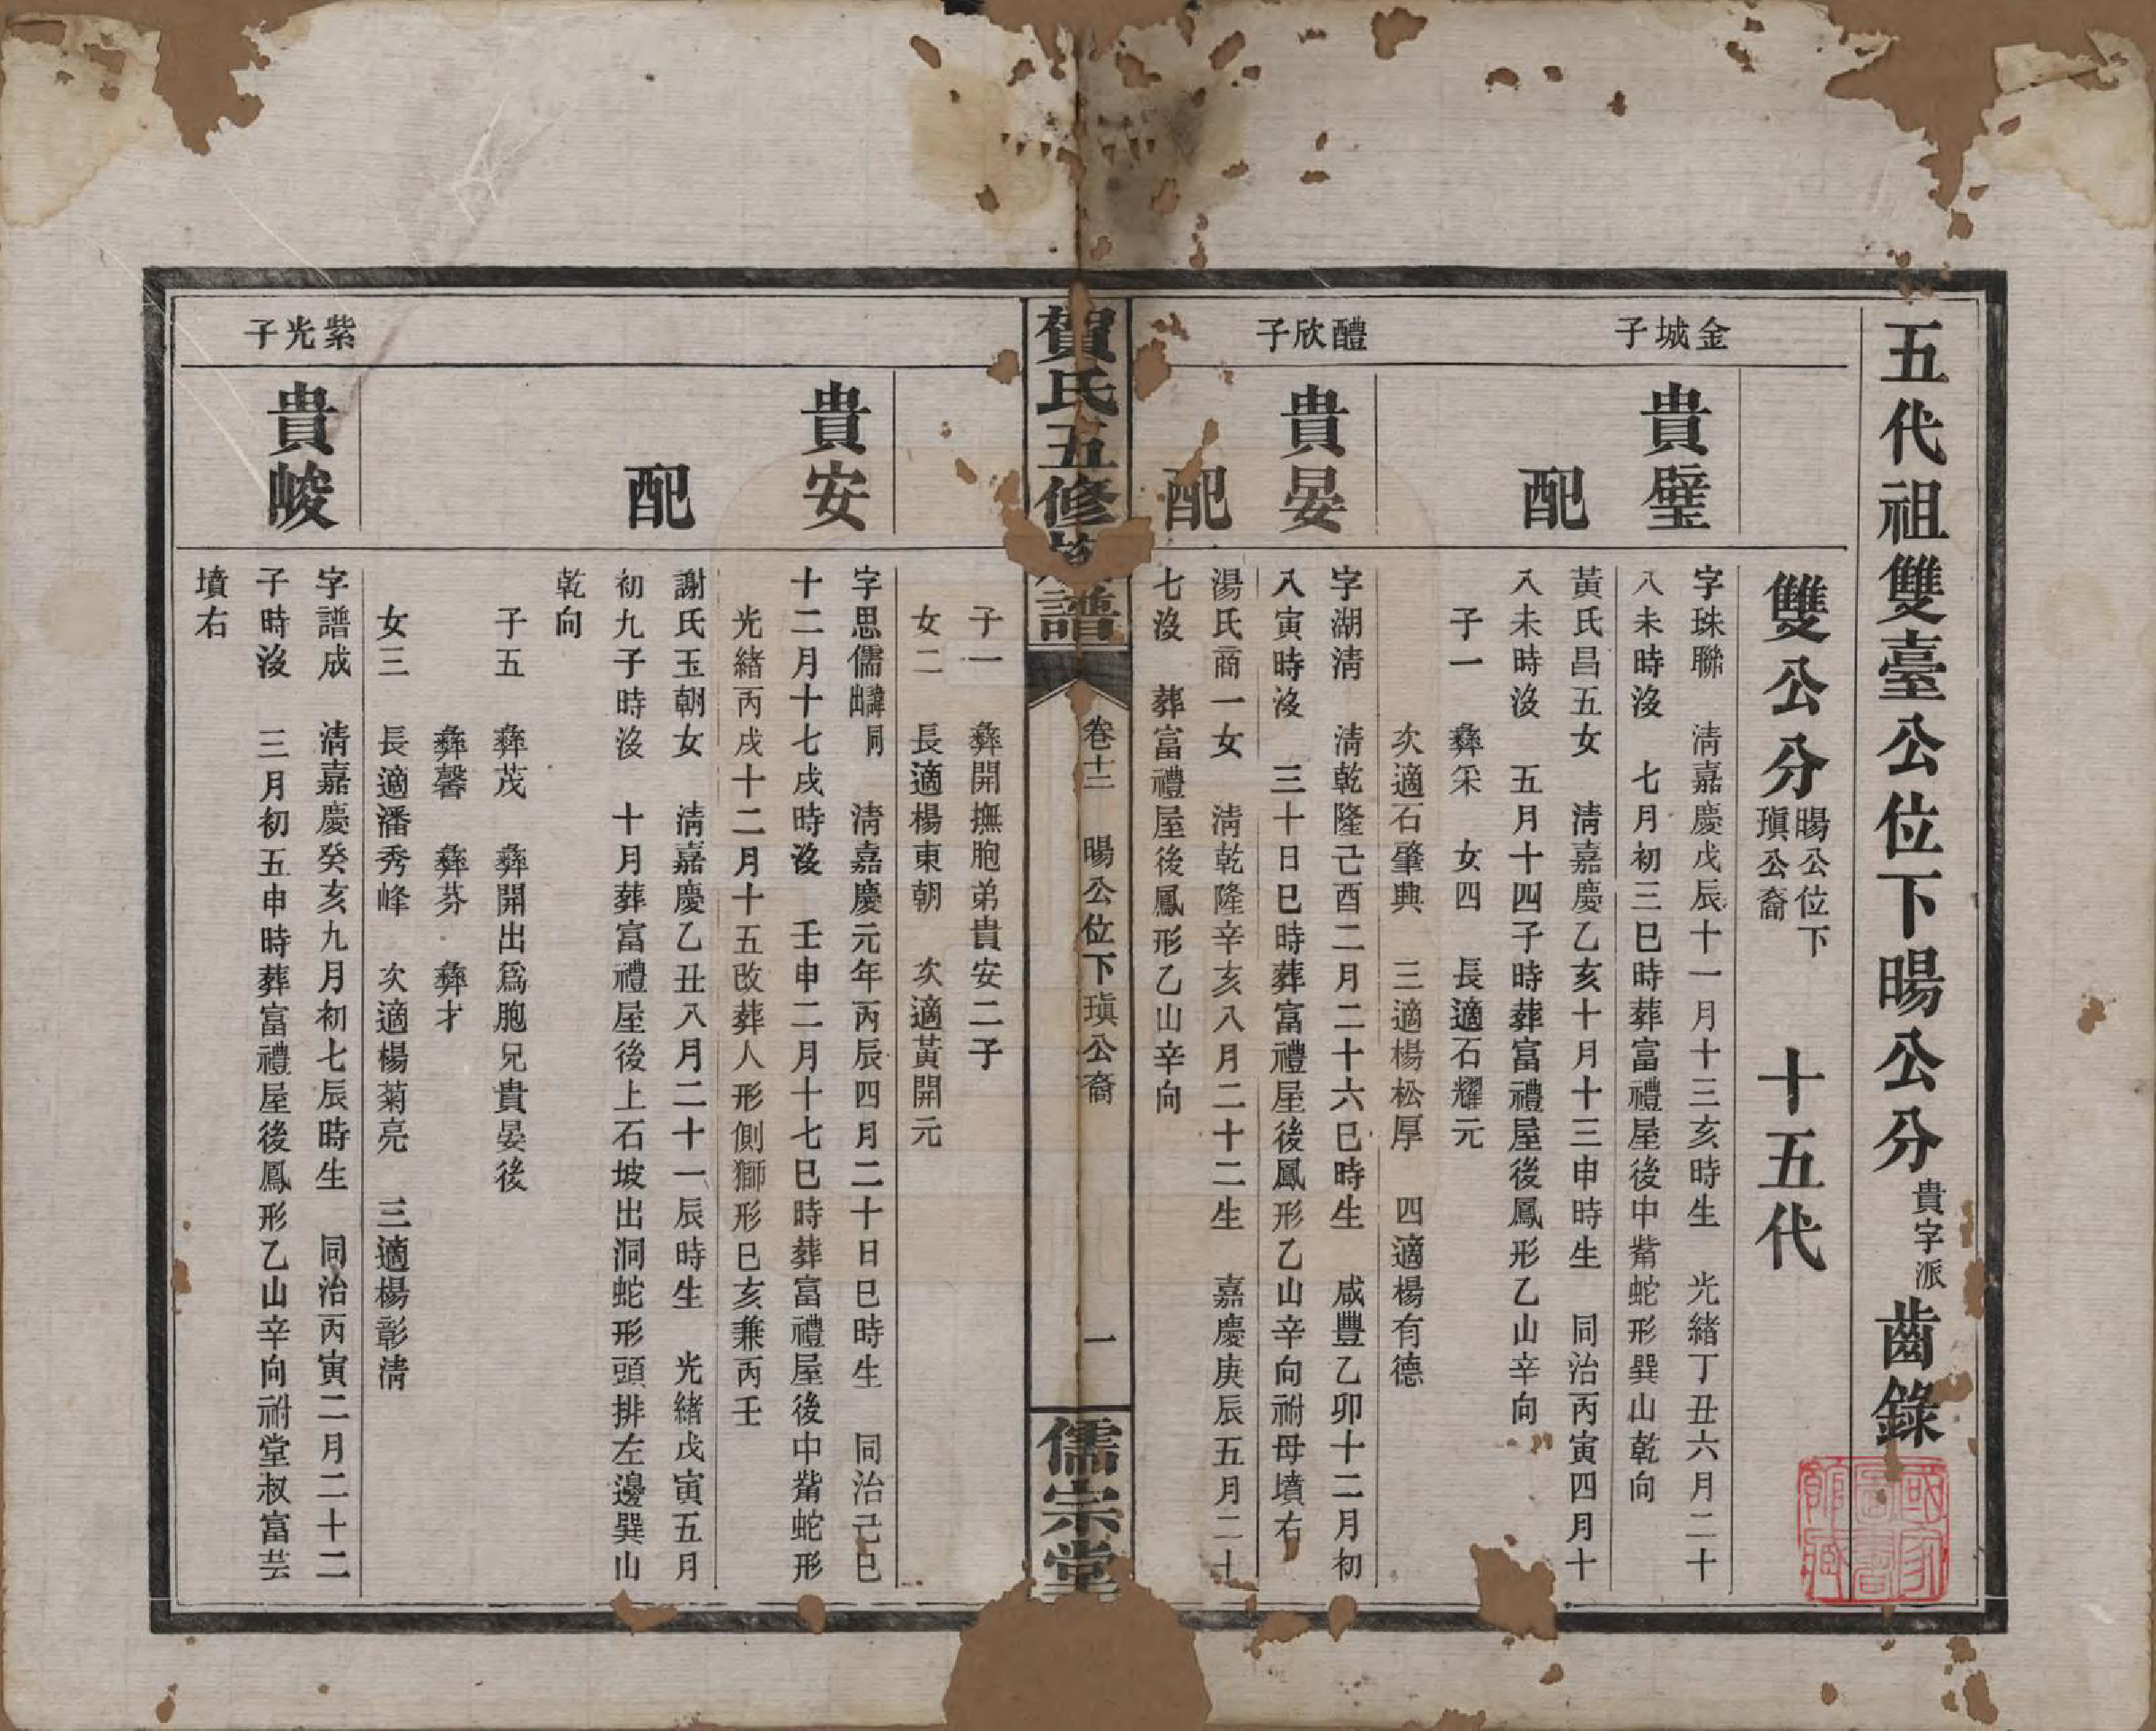 五代祖雙臺公位下暘公分貴字派齒錄
雙公分暘公位下瑱公裔 十五代
金城子
貴璧
字珠聯 清嘉慶戊辰十一月十三亥時生 光緒丁丑六月二十
八未時沒 七月初三巳時葬富禮屋後中觜蛇形巽山乾向
配
黃氏昌五女 清嘉慶乙亥十月十三申時生 同治丙寅四月十
八未時沒 五月十四子時葬富禮屋後鳳形乙山辛向
子一 彝采 女四 長適石耀元
次適石肇典 三適楊松厚 四適楊有德
醴欣子
貴晏
字湖清 清乾隆己酉二月二十六巳時生 咸豐乙卯十二月初
八寅時沒 三十日巳時葬富禮屋後鳳形乙山辛向祔母墳右
配
湯氏商一女 清乾隆辛亥八月二十二生 嘉慶庚辰五月二十
七沒 葬富禮屋後鳳形乙山辛向
賀氏五修 譜 卷十二 暘公位下瑱公裔 一 儒宗堂
子一 彝開撫胞弟貴安二子
女二 長適楊東朝 次適黃開元
貴安
字思儒諱同出 清嘉慶元年丙辰四月二十日巳時生 同治己巳
十二月十七戌時沒 壬申二月十七巳時葬富禮屋後中觜蛇形
光緒丙戌十二月十五改葬人形側獅形巳亥兼丙壬
配
謝氏玉朝女 清嘉慶乙丑八月二十一辰時生 光緒戊寅五月
初九子時沒 十月葬富禮屋後上石坡出洞蛇形頭排左邊巽山
乾向
子五 彝茂 彝開出爲胞兄貴晏後
彝馨 彝芬 彝才
女三 長適潘秀峰 次適楊菊亮 三適楊彰清
紫光子
貴峻
字譜成 清嘉慶癸亥九月初七辰時生 同治丙寅二月二十二
子時沒 三月初五申時葬富禮屋後鳳形乙山辛向祔堂叔富芸
墳右
國家圖書館藏